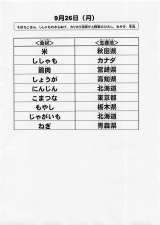 9月26日（月）
<食材> <生産地>
米 秋田県
ししゃも カナダ
鶏肉 宮崎県
しょうが 高知県
にんじん 北海道
こまつな 東京都
もやし 栃木県
じゃがいも 北海道
ねぎ 青森県